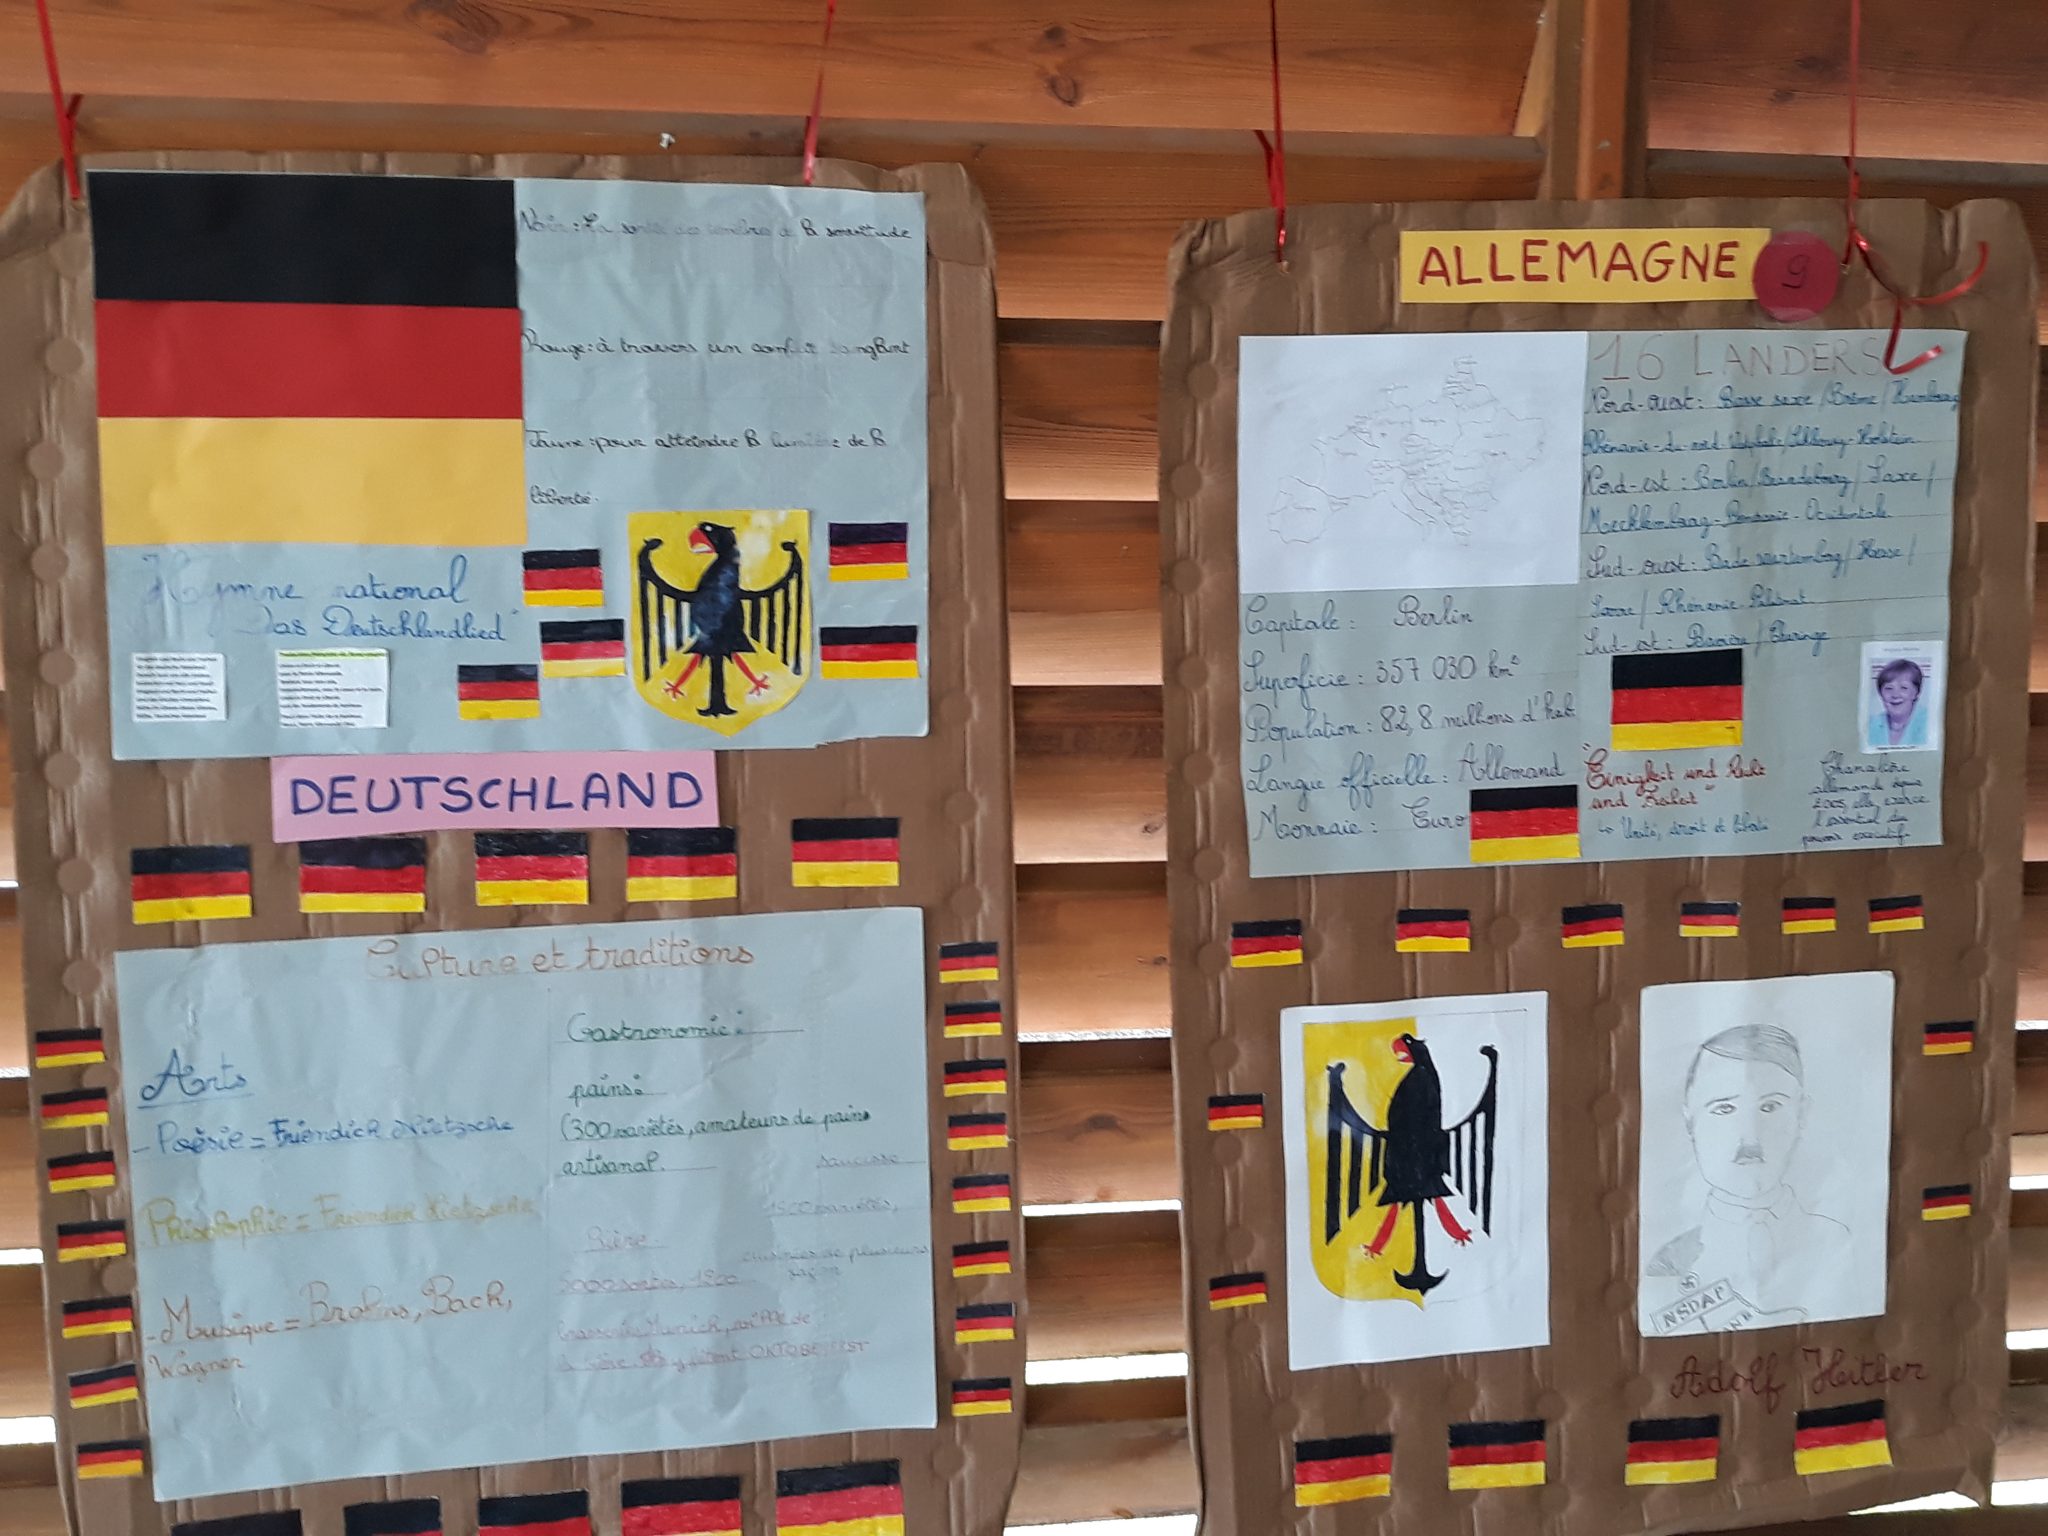 Noir : La sortie des ténèbres de la servitude
Rouge : à travers un conflit sanglant
Jaune : pour atteindre la lumière de la
liberté.
Hymne national
"Das Deutschlandlied"
DEUTSCHLAND
Culture et traditions
Arts
- Poésie = Friendich Nietzsche
- Philosophie = Friendich Nietzsche
- Musique = Brahms, Bach,
Wagner
Gastronomie :
pains :
(300 variétés, amateurs de pains
artisanal.
saucisse
1500 variétés,
cuisinées de plusieurs
façon
Bière
5000 sortes, 1300
brasseries Munich, ville de
la bière y fêtent OKTOBERFEST
ALLEMAGNE 9
16 LANDERS
Nord-ouest : Basse saxe / Brême / Hambourg
Rhénanie-du-nord
Nord-est : Berlin / Brandebourg / Saxe /
Mecklembourg - Poméranie - Occidentale
Sud-ouest : Bade wurtemberg / Hesse /
Sarre / Rhénanie-Palatinat
Sud-est : Bavière / Thuringe
Capitale : Berlin
Superficie : 357 030 km²
Population : 82,8 millions d'hab.
Langue officielle : Allemand
Monnaie : Euro
"Einigkeit und Recht
und Freiheit"
↳ Unité, droit et liberté
Chancelière
allemande depuis
2005, elle exerce
l'essentiel du
pouvoir exécutif.
NSDAP
Adolf Heitler